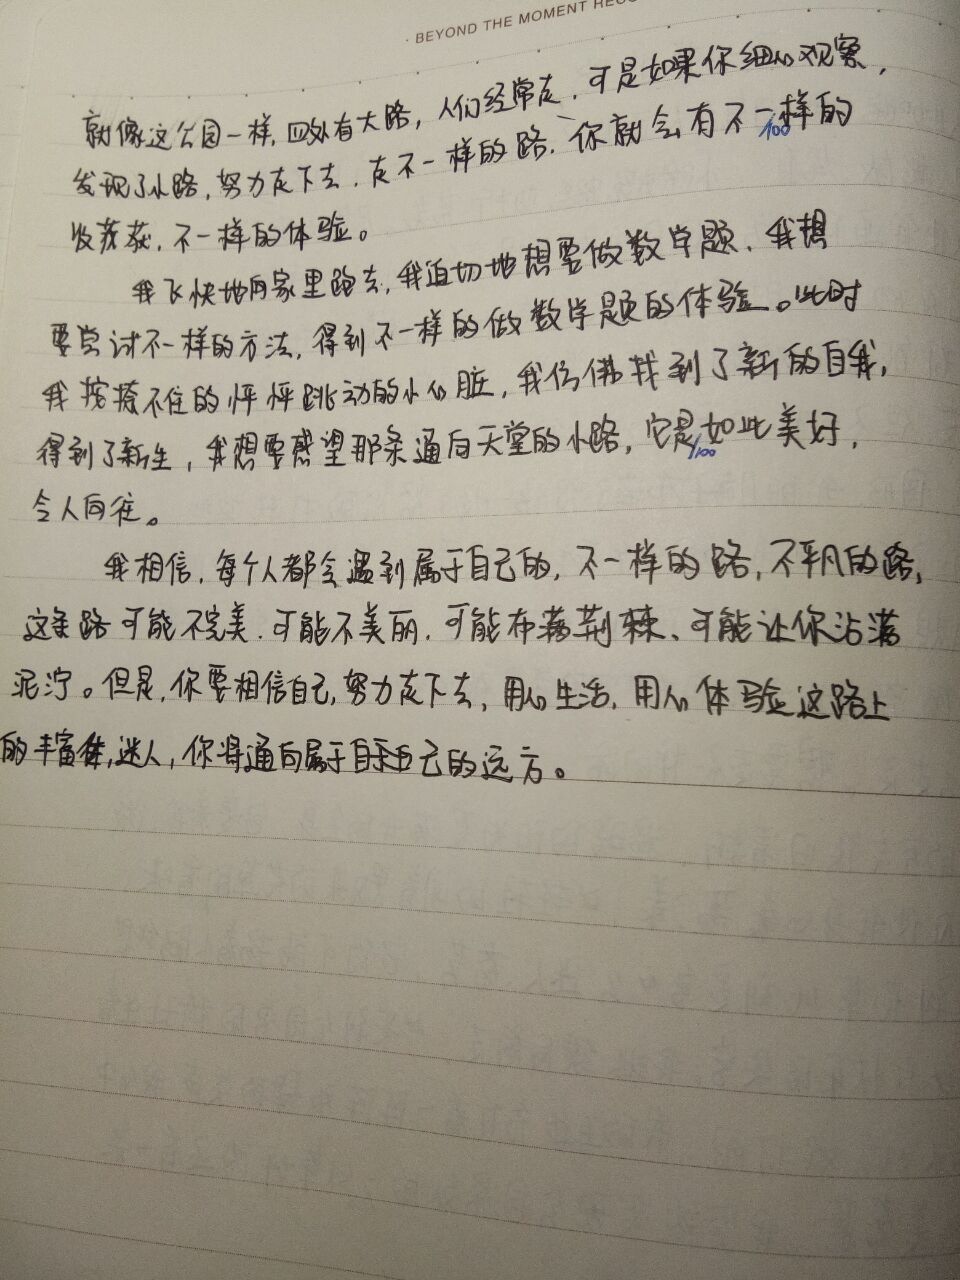 · BEYOND THE MOMENT RECO
就像这公园一样,四处有大路,人们经常走,可是如果你细心观察,
发现了小路,努力走下去,走不一样的路,你就会有不一样的
100
收获,不一样的体验。
我飞快地向家里跑去,我迫切地想要做数学题,我想
要尝试不一样的方法,得到不一样的做数学题的体验。此时
我按捺不住的怦怦跳动的小心脏,我仿佛找到了新的自我,
得到了新生,我想要感望那条通向天堂的小路,它是如此美好,
1100
令人向往。
我相信,每个人都会遇到属于自己的,不一样的路,不平凡的路,
这条路可能不完美,可能不美丽,可能布满荆棘、可能让你沾满
泥泞。但是,你要相信自己,努力走下去,用心生活,用心体验这路上
的丰富,迷人,你将通向属于自己的远方。